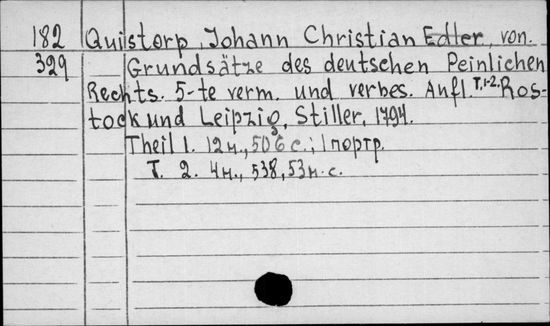 182 Quistorp, Johann Christian Edler, von.
329 Grundsätze des deutschen Peinlichen
Rechts. 5-te verm. und verbes. Aufl. T.1-2. Ros-
tock und Leipzig, Stiller, 1794.
Theil 1. 12н., 506 с.; 1 портр.
T. 2. 4н., 538, 53н. с.